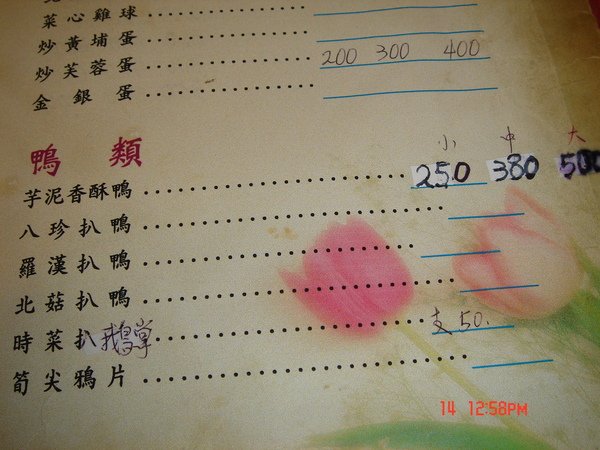 菜心雞球
炒黃埔蛋
炒芙蓉蛋 200 300 400
金銀蛋
鴨類 小 中 大
芋泥香酥鴨 250 380 500
八珍扒鴨
羅漢扒鴨
北菇扒鴨
時菜扒鵝掌 支50.
筍尖鴉片
14 12:58PM